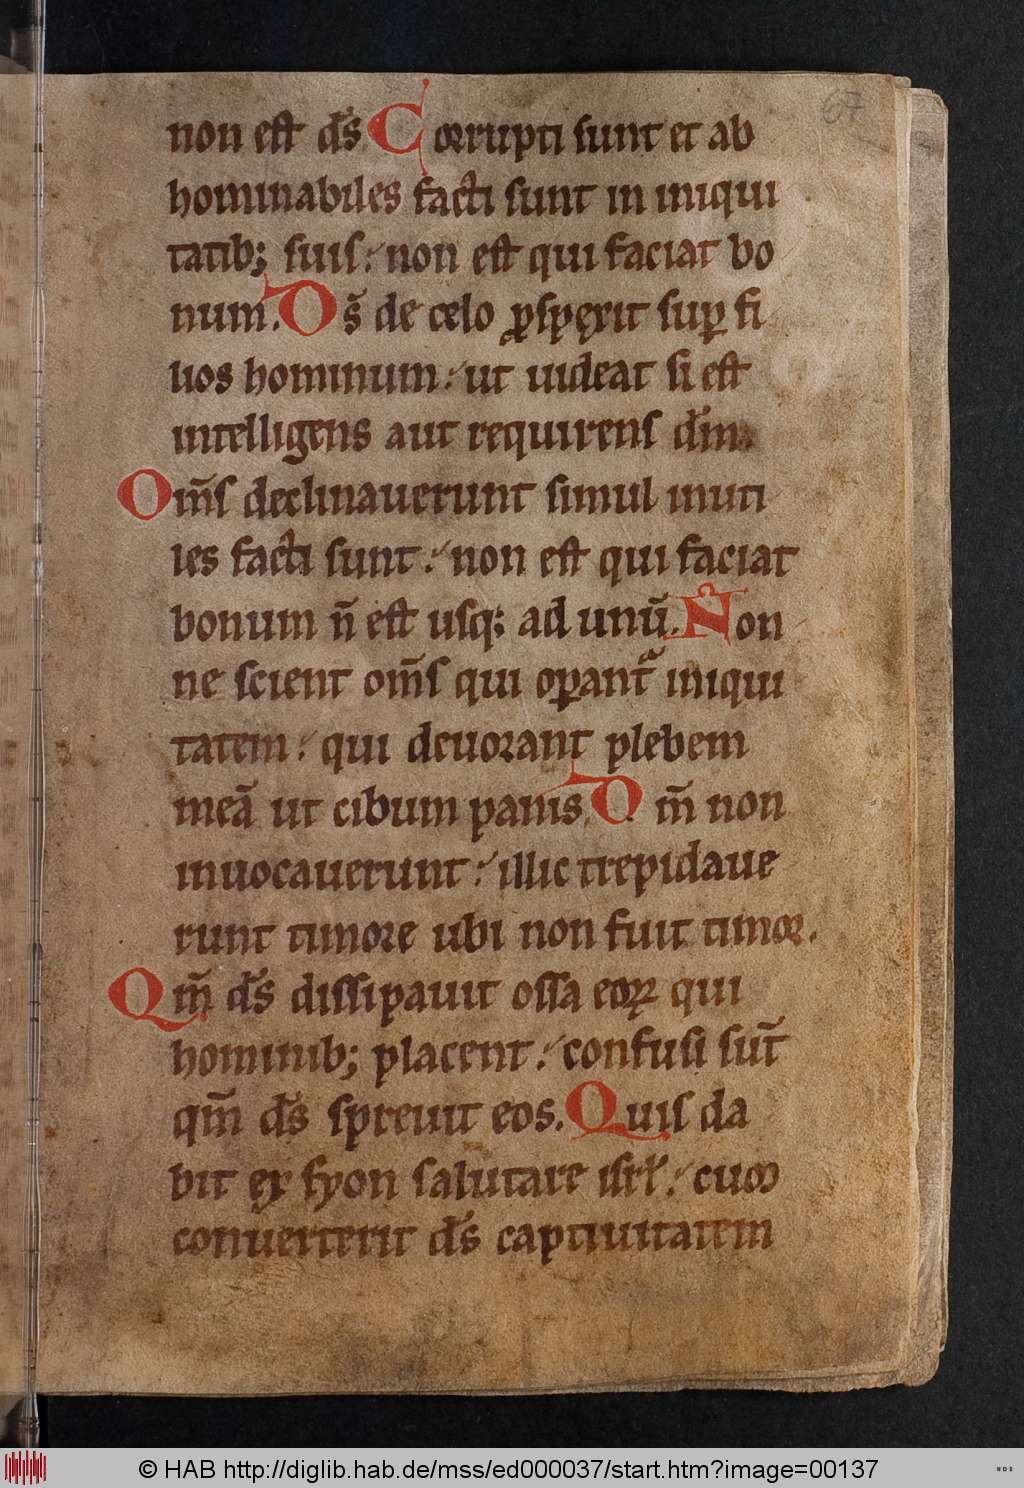 67
non est ds̄ Corrupti sunt et ab
hominabiles facti sunt in iniqui
tatib; suis: non est qui faciat bo
num. Ds̄ de celo ꝓspęxit suꝑ fi
lios hominum: ut uideat si est
intelligens aut requirens dm̄.
Om̄s declinauerunt simul inuti
les facti sunt: non est qui faciat
bonum n̄ est usq; ad unū. Non
ne scient om̄s qui oꝑant᷑ iniqui
tatem: qui deuorant plebem
meā ut cibum panis. Dm̄ non
inuocauerunt: illic trepidaue
runt timore ubi non fuit timor.
Qm̄ ds̄ dissipauit ossa eoꝝ qui
hominib; placent: confusi sut̄
qm̄ ds̄ spreuit eos. Quis da
bit ex syon salutare isrł: cum
conuerterit ds̄ captiuitatem
© HAB http://diglib.hab.de/mss/ed000037/start.htm?image=00137